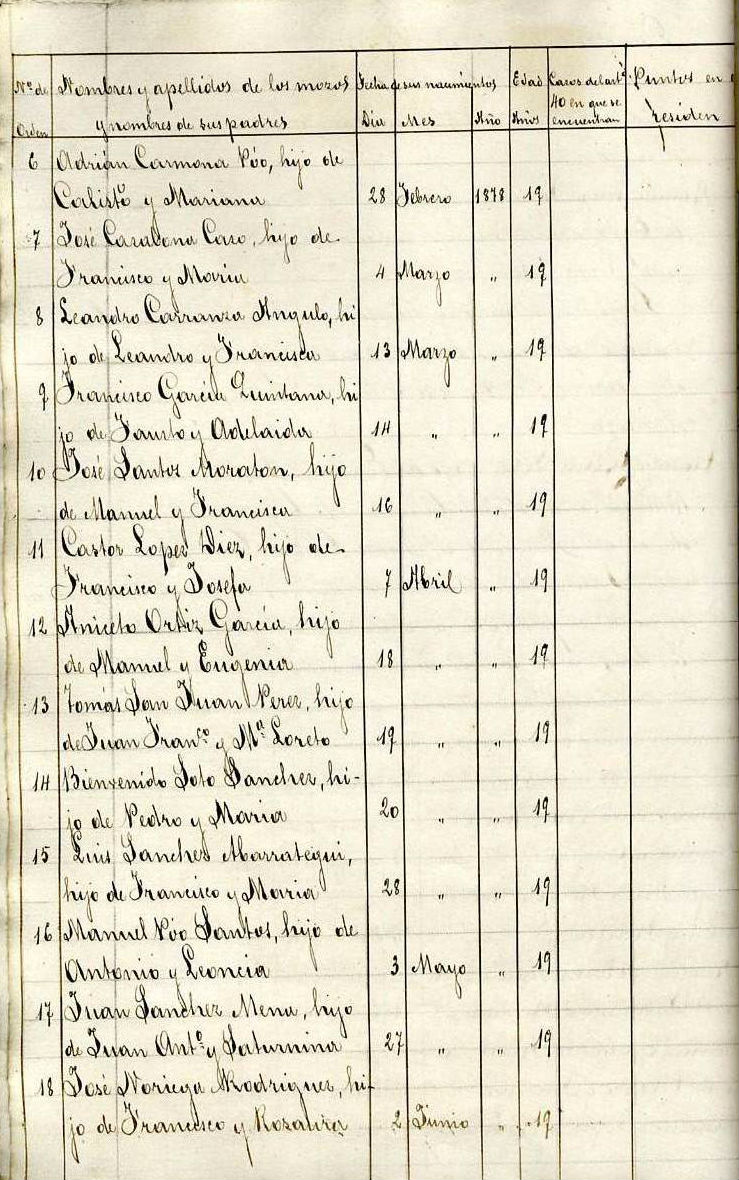 Nº de Nombres y apellidos de los mozos Fecha de sus nacimientos Edad Casos del artº Puntos en
Orden y nombres de sus padres Dia Mes Año Años 40 en que se encuentran residen
6 Adrián Carmona Póo, hijo de
Calisto y Mariana 28 Febrero 1878 19
7 José Casabona Caso, hijo de
Francisco y María 4 Marzo " 19
8 Leandro Carranza Angulo, hi
jo de Leandro y Francisca 13 Marzo " 19
9 Francisco García Quintana, hi
jo de Fausto y Adelaida 14 " " 19
10 José Santos Moraton, hijo
de Manuel y Francisca 16 " " 19
11 Castor Lopez Diez, hijo de
Francisco y Josefa 7 Abril " 19
12 Aniceto Ortiz García, hijo
de Manuel y Eugenia 18 " " 19
13 Tomás San Juan Perez, hijo
de Juan Franco y Mª Loreto 19 " " 19
14 Bienvenido Soto Sanchez, hi-
jo de Pedro y Maria 20 " " 19
15 Luis Sanchez Abarrategui,
hijo de Francisco y Maria 28 " " 19
16 Manuel Póo Santos, hijo de
Antonio y Leoncia 3 Mayo " 19
17 Juan Sanchez Mena, hijo
de Juan Antº y Saturnina 27 " " 19
18 José Noriega Rodriguez, hi-
jo de Francisco y Rosaura 2 Junio " 19